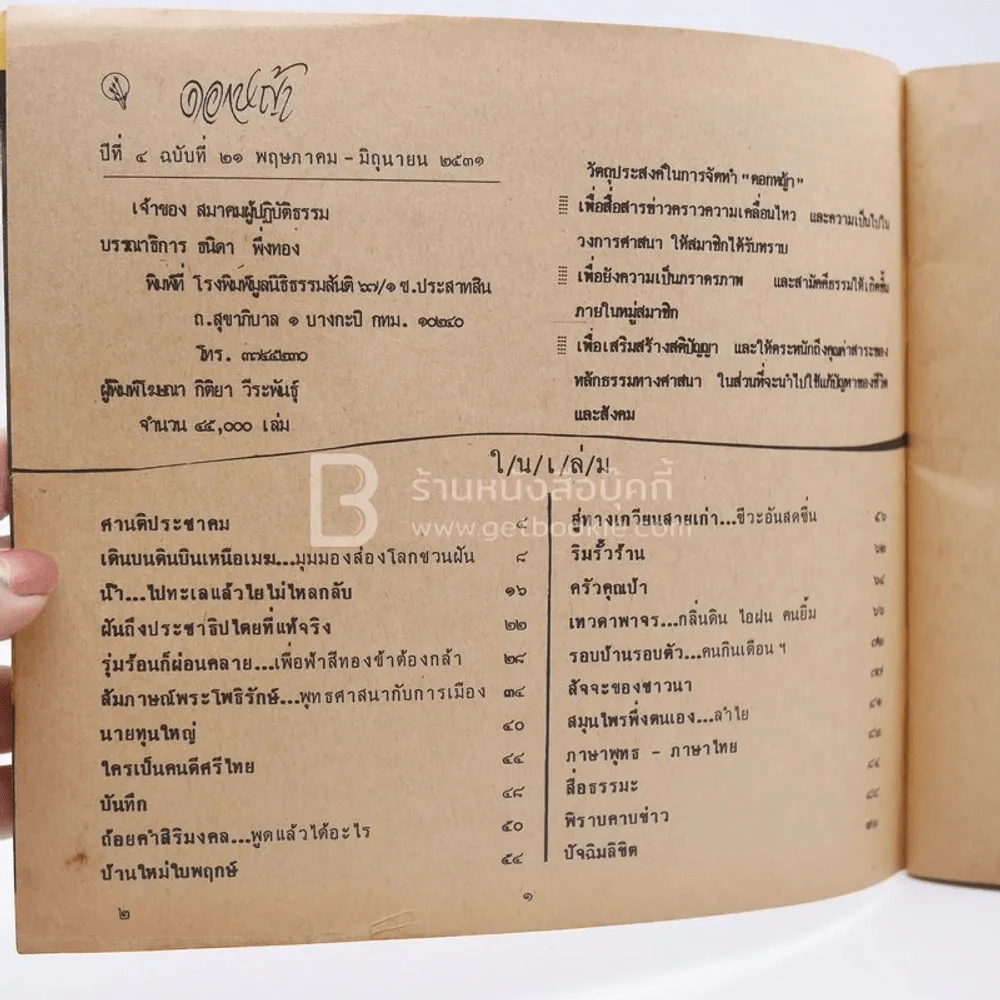 ดอกหญ้า
ปีที่ ๔ ฉบับที่ ๒๑ พฤษภาคม - มิถุนายน ๒๕๓๑
เจ้าของ สมาคมผู้ปฏิบัติธรรม
บรรณาธิการ ธนิดา พึ่งทอง
พิมพ์ที่ โรงพิมพ์มูลนิธิธรรมสันติ ๖๗/๑ ซ.ประสาทสิน
ถ.สุขาภิบาล ๑ บางกะปิ กทม. ๑๐๒๔๐
โทร. ๓๗๔๕๒๓๐
ผู้พิมพ์โฆษณา กิติยา วีระพันธุ์
จำนวน ๔๕,๐๐๐ เล่ม
วัตถุประสงค์ในการจัดทำ "ดอกหญ้า"
เพื่อสื่อสารข่าวคราวความเคลื่อนไหว และความเป็นไปใน
วงการศาสนา ให้สมาชิกได้รับทราบ
เพื่อยังความเป็นภราดรภาพ และสามัคคีธรรมให้เกิดขึ้น
ภายในหมู่สมาชิก
เพื่อเสริมสร้างสติปัญญา และให้ตระหนักถึงคุณค่าสาระของ
หลักธรรมทางศาสนา ในส่วนที่จะนำไปใช้แก้ปัญหาของชีวิต
และสังคม
ใ/น/เ/ล่/ม
ร้านหนังสือบุ๊คกี้
www.getbookie.com
ศานติประชาคม ๔
เดินบนดินบินเหนือเมฆ...มุมมองส่องโลกชวนฝัน ๘
น้ำ...ไปทะเลแล้วไยไม่ไหลกลับ ๑๖
ฝันถึงประชาธิปไตยที่แท้จริง ๒๒
รุ่มร้อนก็ผ่อนคลาย...เพื่อฟ้าสีทองข้าต้องกล้า ๒๘
สัมภาษณ์พระโพธิรักษ์...พุทธศาสนากับการเมือง ๓๔
นายทุนใหญ่ ๔๐
ใครเป็นคนดีศรีไทย ๔๔
บันทึก ๔๘
ถ้อยคำสิริมงคล...พูดแล้วได้อะไร ๕๐
บ้านใหม่ใบพฤกษ์ ๕๔
สู่ทางเกวียนสายเก่า...ชีวะอันสดชื่น ๕๖
ริมรั้วร้าน ๖๒
ครัวคุณป้า ๖๔
เทวดาพาจร...กลิ่นดิน ไอฝน คนยิ้ม ๖๖
รอบบ้านรอบตัว...คนกินเดือน ฯ
สัจจะของชาวนา
สมุนไพรพึ่งตนเอง...ลำไย
ภาษาพุทธ - ภาษาไทย
สื่อธรรมะ
พิราบคาบข่าว
ปัจฉิมลิขิต
๒
๑